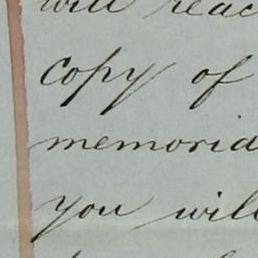 will reac
copy of
memoria
you will